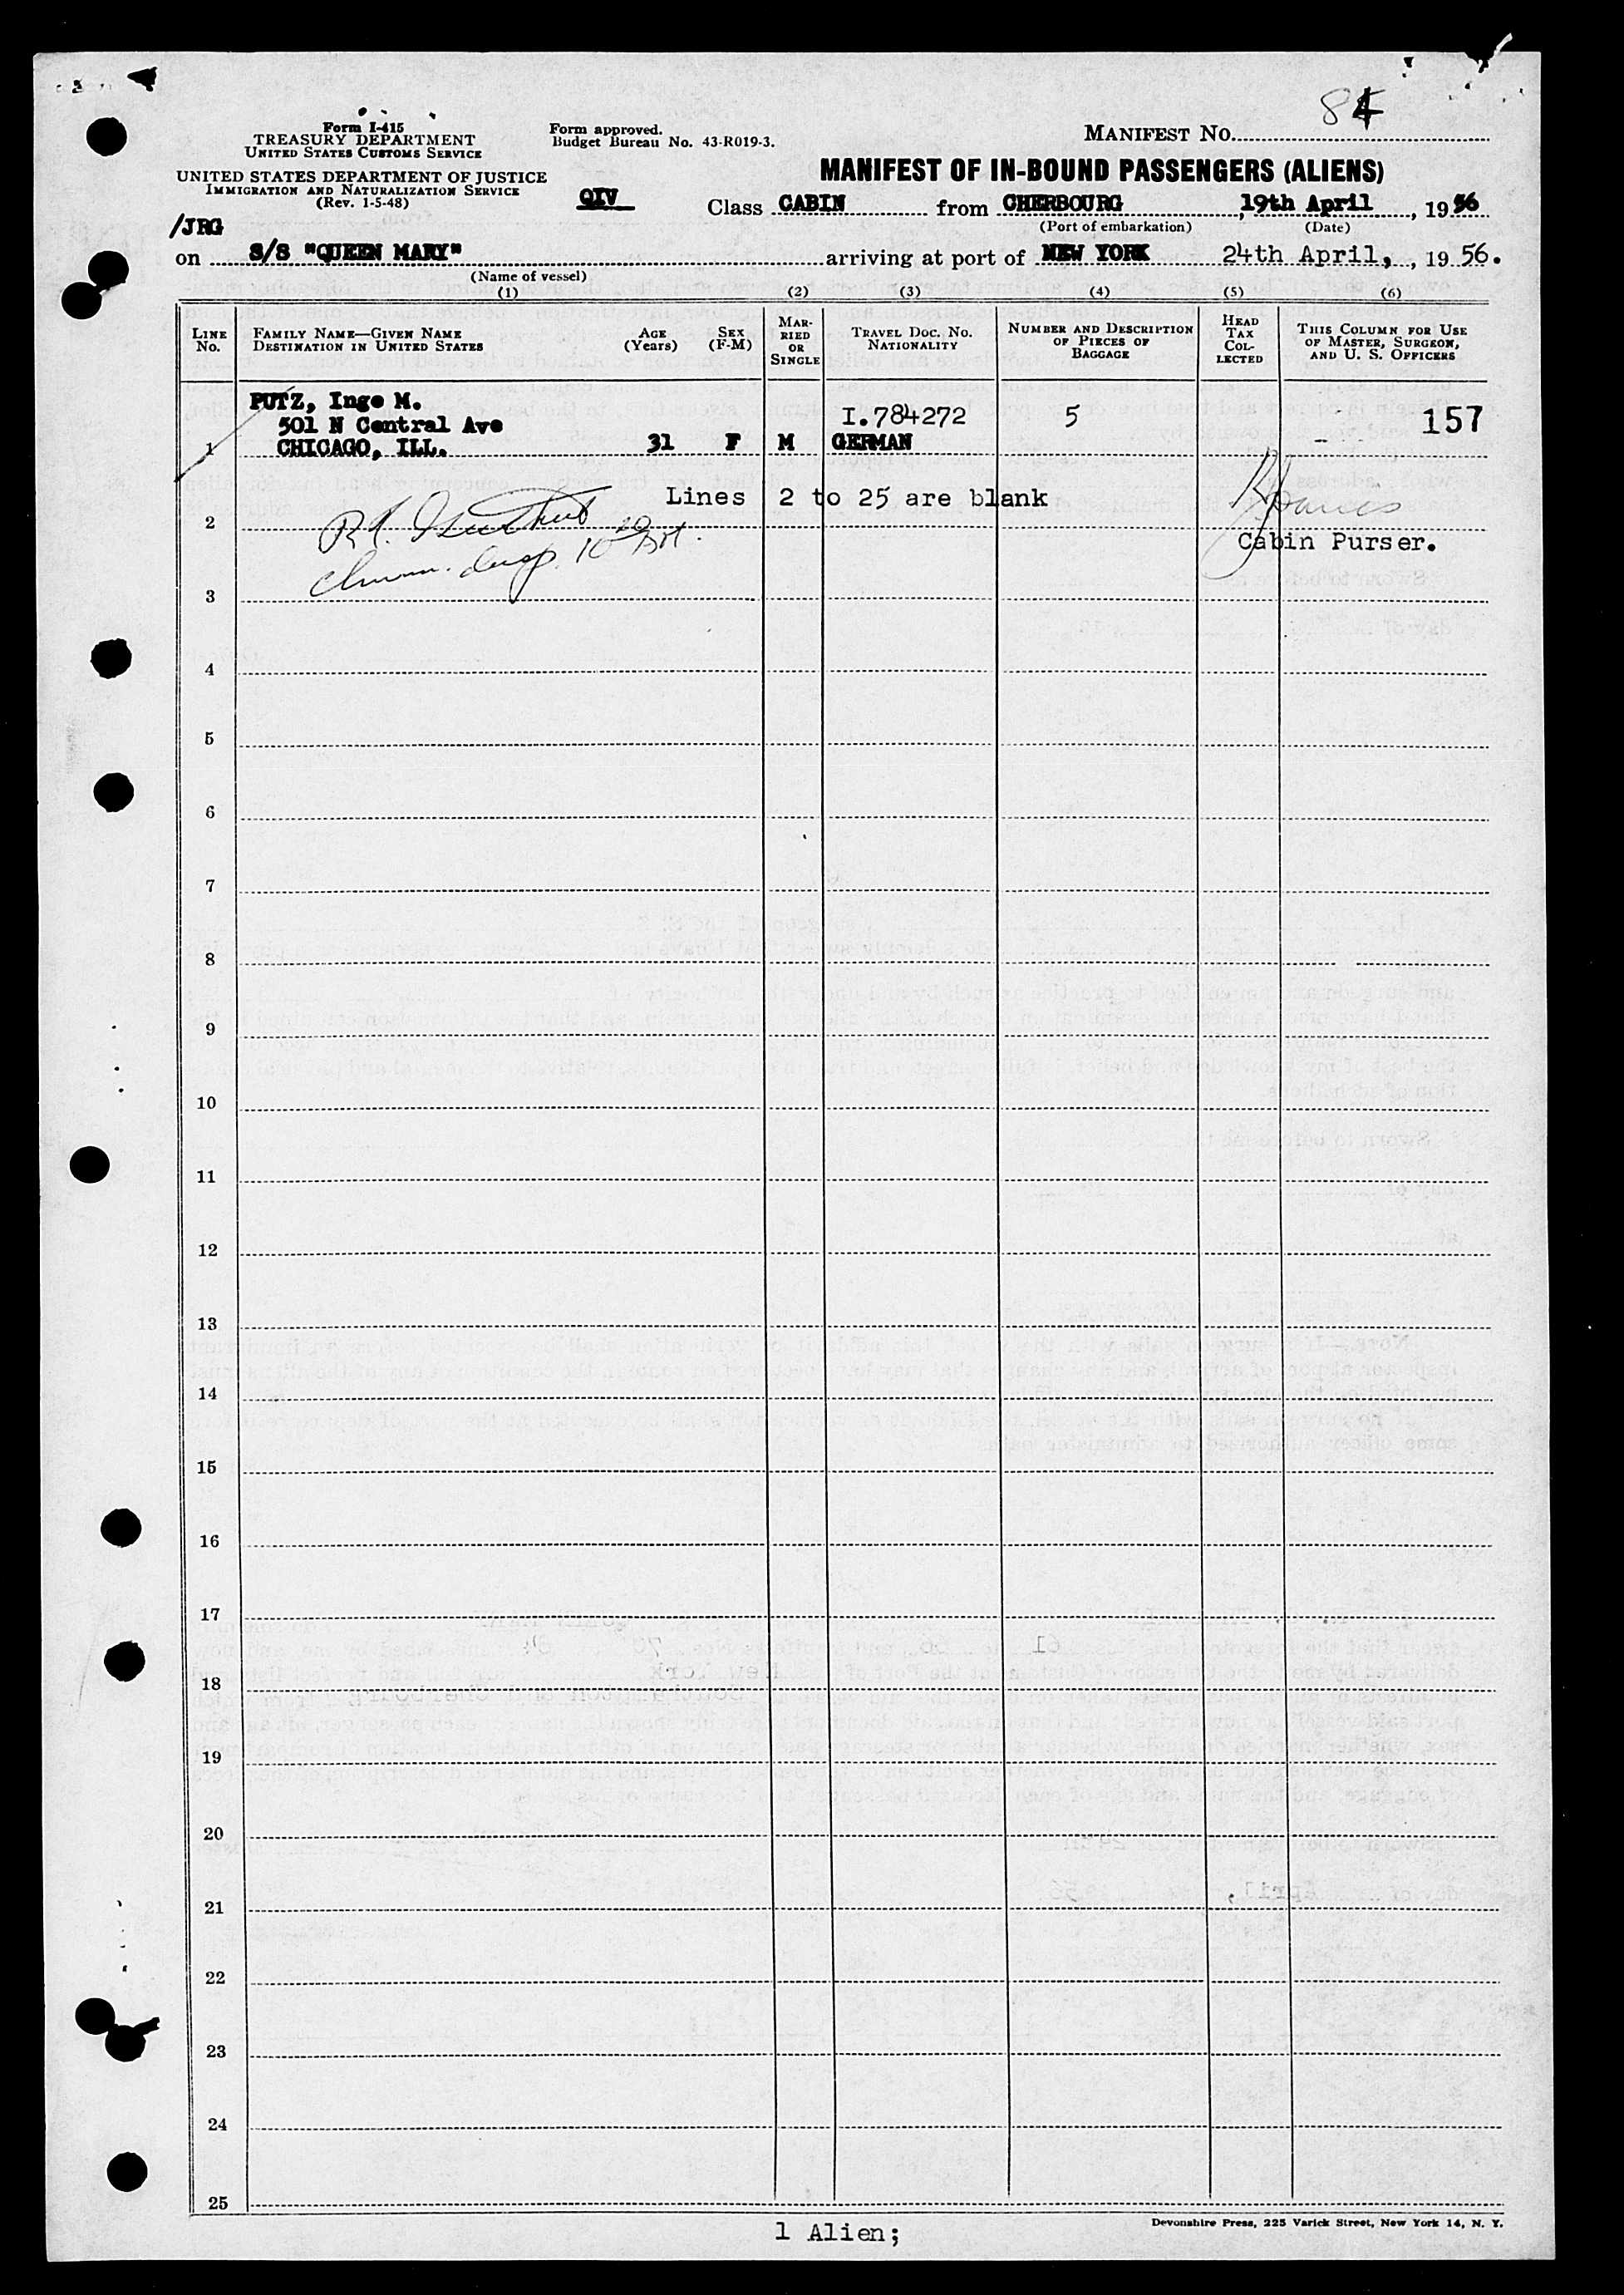 84
Form I-415
TREASURY DEPARTMENT
UNITED STATES CUSTOMS SERVICE
UNITED STATES DEPARTMENT OF JUSTICE
IMMIGRATION AND NATURALIZATION SERVICE
(Rev. 1-5-48)
Form approved.
Budget Bureau No. 43-R019-3.
MANIFEST No.
MANIFEST OF IN-BOUND PASSENGERS (ALIENS)
QIV Class CABIN from CHERBOURG, 19th April, 1956
(Port of embarkation) (Date)
/JRG
on S/S "QUEEN MARY" arriving at port of NEW YORK 24th April, , 1956.
(Name of vessel)
(1) (2) (3) (4) (5) (6)
LINE No.
FAMILY NAME—GIVEN NAME
DESTINATION IN UNITED STATES
AGE (Years)
SEX (F-M)
MARRIED OR SINGLE
TRAVEL DOC. NO.
NATIONALITY
NUMBER AND DESCRIPTION OF PIECES OF BAGGAGE
HEAD TAX COLLECTED
THIS COLUMN FOR USE OF MASTER, SURGEON, AND U. S. OFFICERS
PUTZ, Inge M.
501 N Central Ave I.784272 5 157
1 CHICAGO, ILL. 31 F M GERMAN
Lines 2 to 25 are blank
2
Cabin Purser.
3
4
5
6
7
8
9
10
11
12
13
14
15
16
17
18
19
20
21
22
23
24
25
1 Alien;
Devonshire Press, 225 Varick Street, New York 14, N. Y.